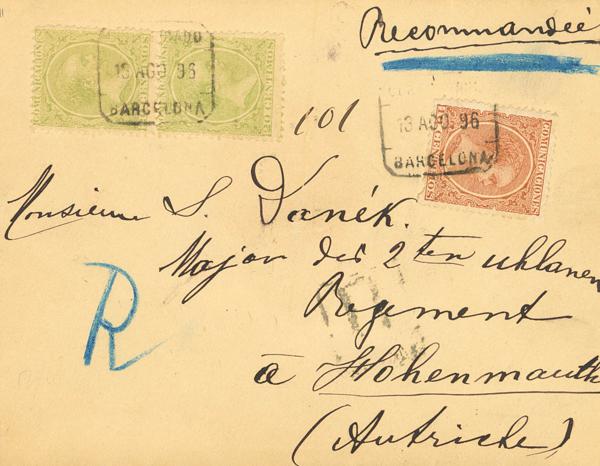 Recommandée
CERTIFICADO
13 AGO. 96
BARCELONA
13 AGO. 96
BARCELONA
COMUNICACIONES
COMUNICACIONES
CENTIMOS
101
Monsieur S. Danék.
Major des 2ten Uhlanen
Regement
R
R
à Hohenmauth
(Autriche)